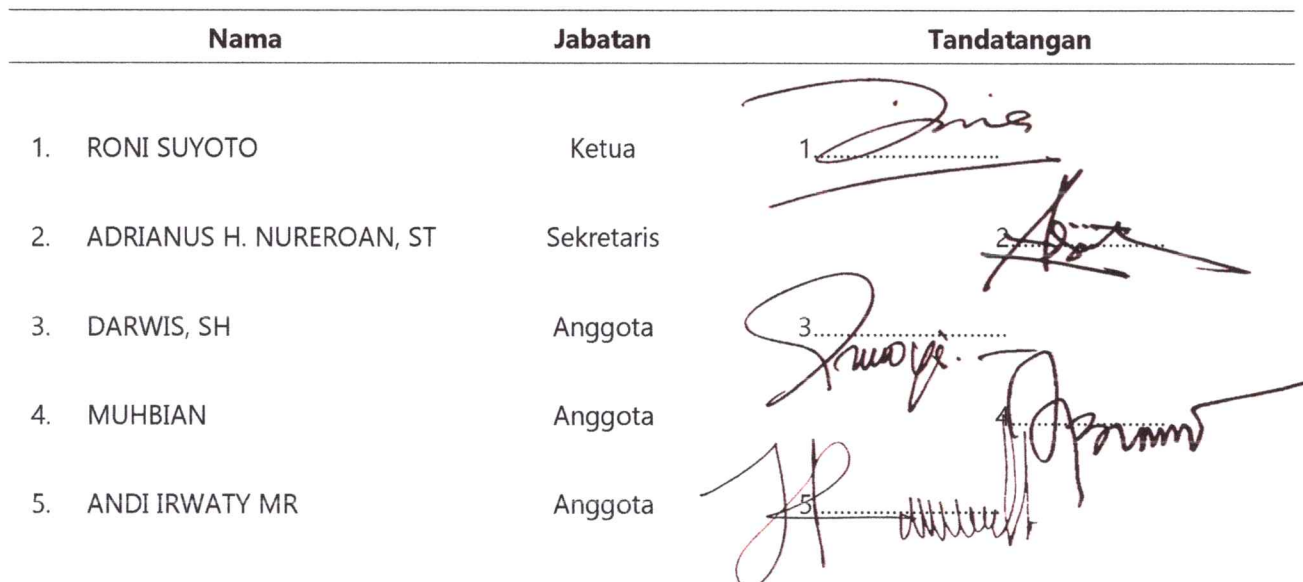 Nama Jabatan Tandatangan
1. RONI SUYOTO Ketua 1....................
2. ADRIANUS H. NUREROAN, ST Sekretaris 2....................
3. DARWIS, SH Anggota 3....................
4. MUHBIAN Anggota 4....................
5. ANDI IRWATY MR Anggota 5....................